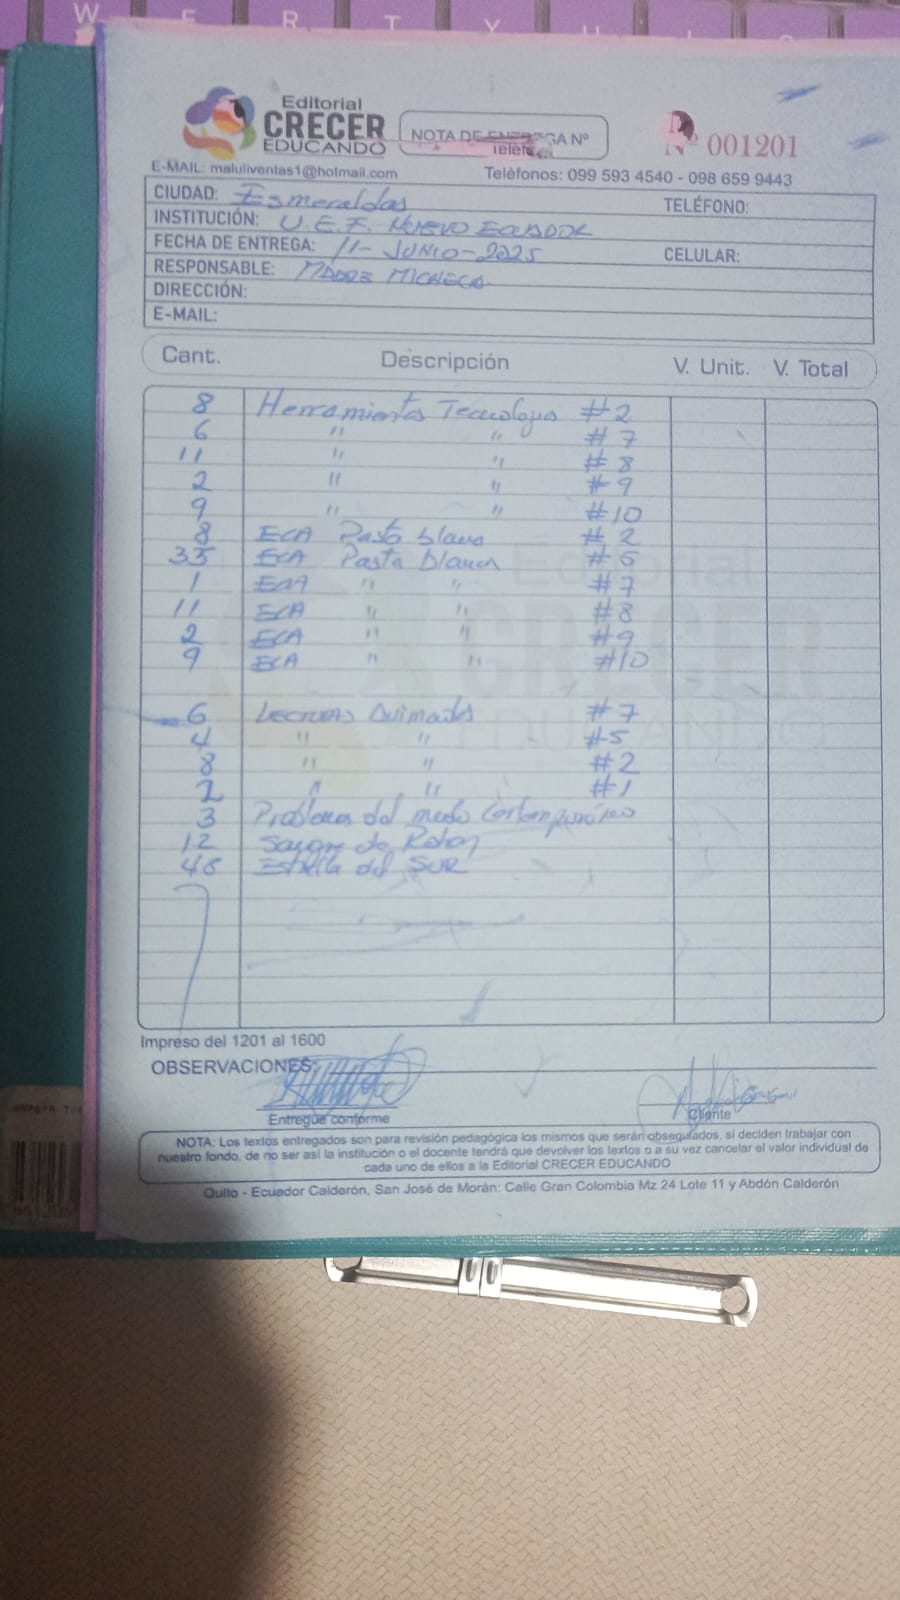 W E R T Y U
Editorial
CRECER
EDUCANDO
NOTA DE ENTREGA Nº
Teléfo
Nº 001201
E-MAIL: maluliventas1@hotmail.com
Teléfonos: 099 593 4540 - 098 659 9443
CIUDAD: Esmeraldas TELÉFONO:
INSTITUCIÓN: U.E.F. NUEVO ECUADOR
FECHA DE ENTREGA: 11-JUNIO-2025 CELULAR:
RESPONSABLE: MADRE MICAELA
DIRECCIÓN:
E-MAIL:
Cant. Descripción V. Unit. V. Total
8 Herramientas Tecnologia #2
6 " " #7
11 " " #8
2 " " #9
9 " " #10
8 ECA Pasta blanca #2
33 ECA Pasta blanca #6
1 ECA " " #7
11 ECA " " #8
2 ECA " " #9
9 ECA " " #10
6 Lecturas Animadas #7
4 " " #5
8 " " #2
2 " " #1
3 Problemas del mundo Contemporáneo
12 Sangre de
48 Estrella del SUR
Editorial
CRECER
EDUCANDO
Impreso del 1201 al 1600
OBSERVACIONES:
Entregue conforme
Cliente
NOTA: Los textos entregados son para revisión pedagógica los mismos que serán obsequiados, si deciden trabajar con
nuestro fondo, de no ser así la institución o el docente tendrá que devolver los textos o a su vez cancelar el valor individual de
cada uno de ellos a la Editorial CRECER EDUCANDO
Quito - Ecuador Calderón, San José de Morán: Calle Gran Colombia Mz 24 Lote 11 y Abdón Calderón